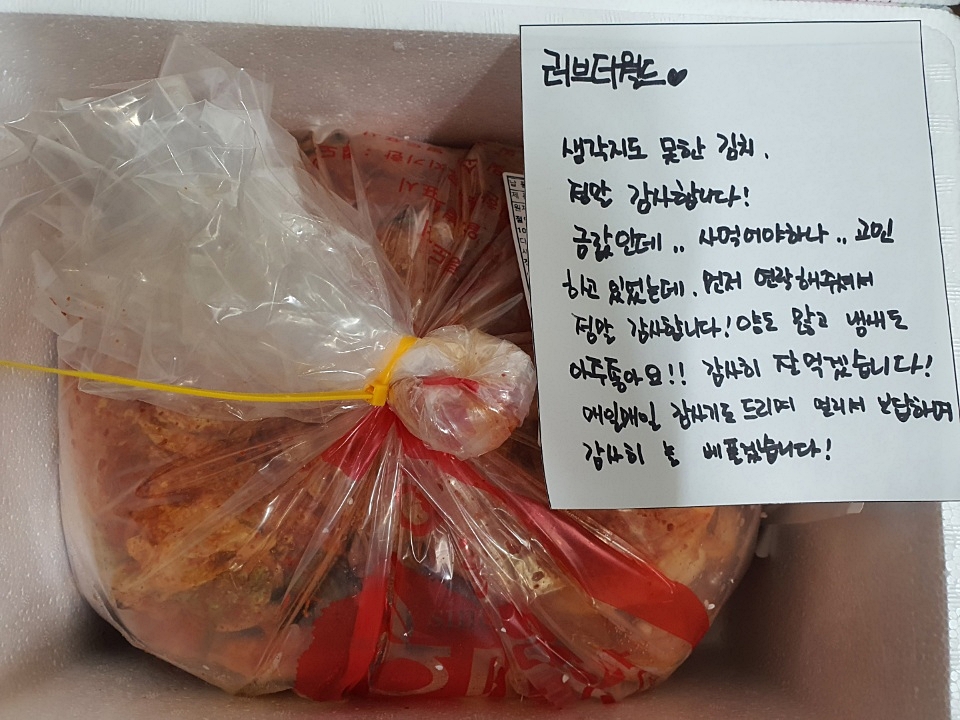 러브더월드♥
생각지도 못한 김치.
정말 감사합니다!
금값인데.. 사먹어야하나.. 고민
하고 있었는데. 먼저 연락해주셔서
정말 감사합니다! 양도 많고 냄새도
아주좋아요!! 감사히 잘먹겠습니다!
매일매일 감사기도드리며 멀리서 보답하며
감사히 늘 베풀겠습니다!